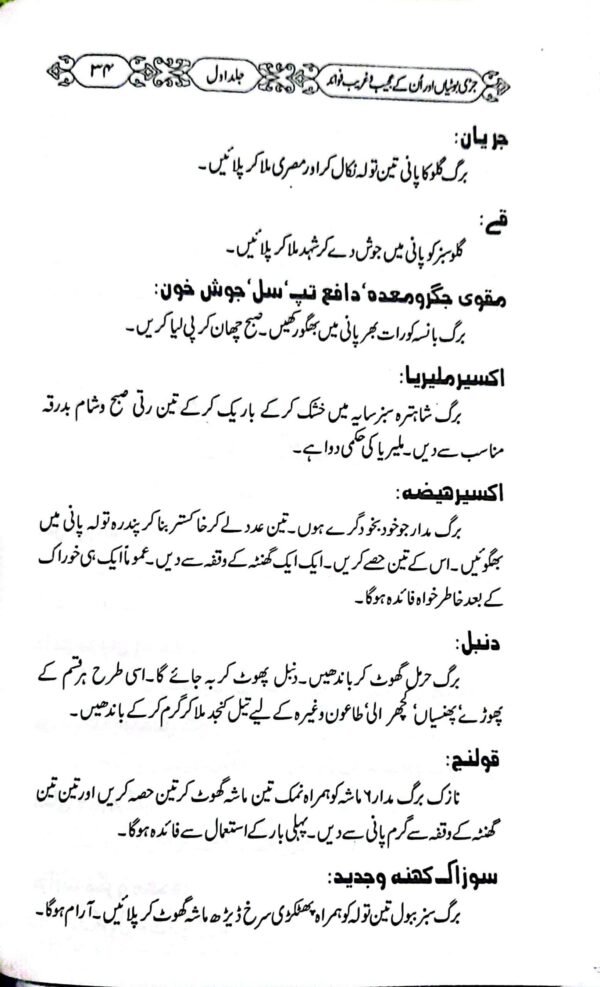 جڑی بوٹیاں اور اُن کے عجیب و غریب فوائد جلد اول ۳۴
جریان:
برگ گلو کا پانی تین تولہ نکال کر اور مصری ملا کر پلائیں۔
قے:
گلو سبز کو پانی میں جوش دے کر شہد ملا کر پلائیں۔
مقوی جگر و معدہ‘ دافع تپ‘ سل‘ جوش خون:
برگ بانسہ کو رات بھر پانی میں بھگو رکھیں۔ صبح چھان کر پی لیا کریں۔
اکسیر ملیریا:
برگ شاہترہ سبز سایہ میں خشک کر کے باریک کر کے تین رتی صبح و شام بدرقہ
مناسب سے دیں۔ ملیریا کی حکمی دوا ہے۔
اکسیر ھیضہ:
برگ مدار جو خود بخود گرے ہوں۔ تین عدد لے کر خاکستر بنا کر پندرہ تولہ پانی میں
بھگوئیں۔ اس کے تین حصے کریں۔ ایک ایک گھنٹہ کے وقفہ سے دیں۔ عموماً ایک ہی خوراک
کے بعد خاطر خواہ فائدہ ہوگا۔
دنبل:
برگ حرمل گھوٹ کر باندھیں۔ دنبل پھوٹ کر بہ جائے گا۔ اسی طرح ہر قسم کے
پھوڑے‘ پھنسیاں‘ گچھر الی‘ طاعون وغیرہ کے لیے تیل کنجد ملا کر گرم کر کے باندھیں۔
قولنج:
نازک برگ مدار ۶ ماشہ کو ہمراہ نمک تین ماشہ گھوٹ کر تین حصہ کریں اور تین تین
گھنٹہ کے وقفہ سے گرم پانی سے دیں۔ پہلی بار کے استعمال سے فائدہ ہوگا۔
سوزاک کھنہ و جدید:
برگ سبز ببول تین تولہ کو ہمراہ پھٹکڑی سرخ ڈیڑھ ماشہ گھوٹ کر پلائیں۔ آرام ہوگا۔